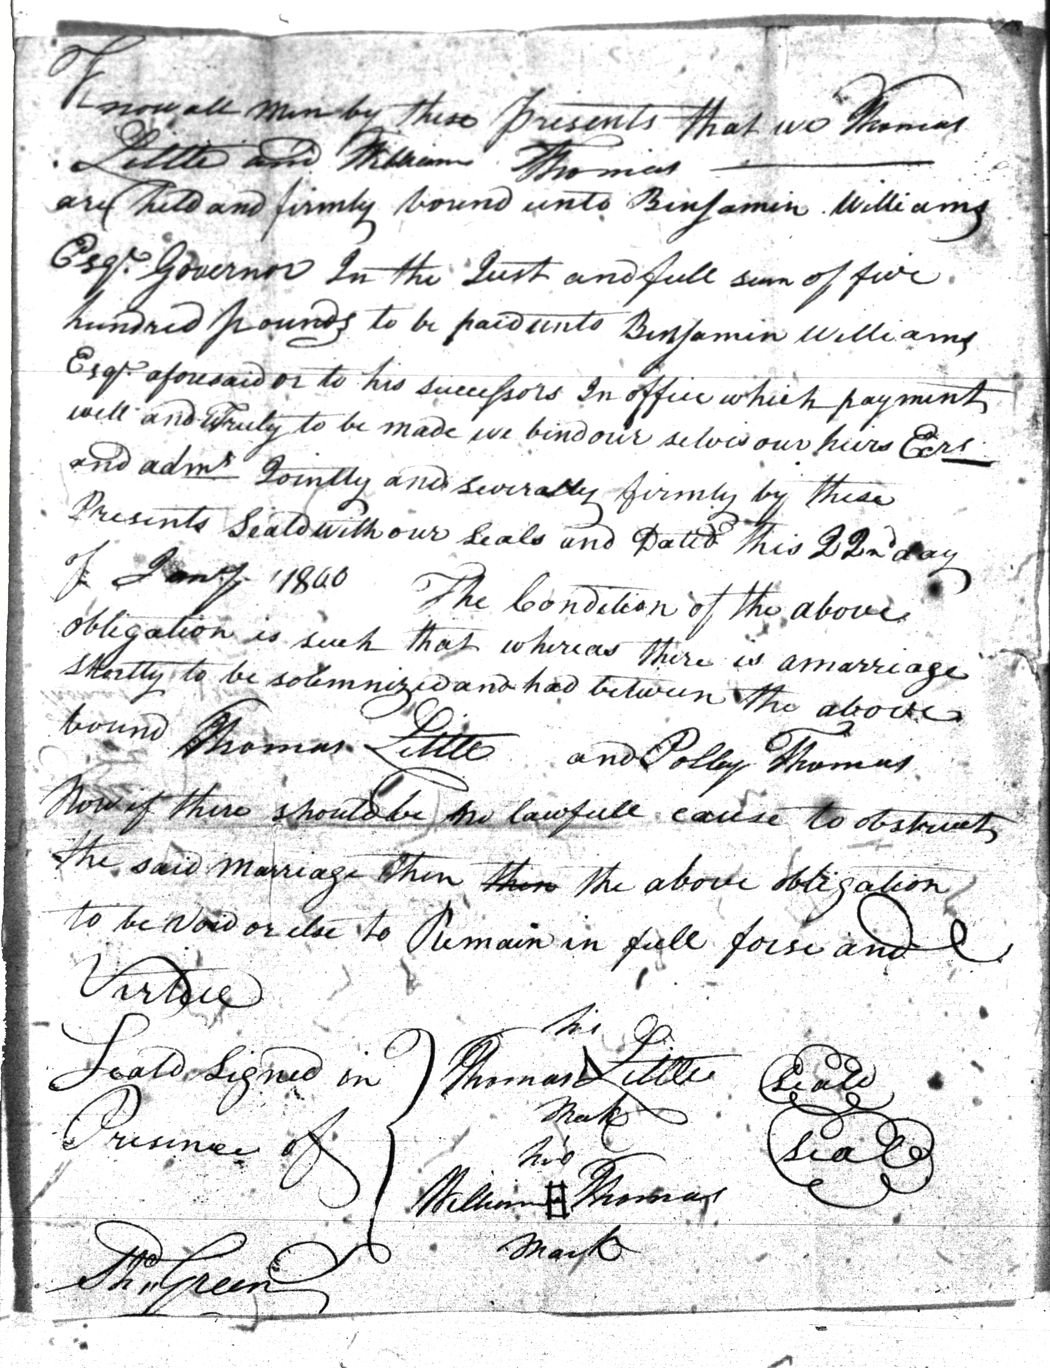 Know all men by these presents that we Thomas
Little and William Thomas
are held and firmly bound unto Binjamin Williams
Esqr. Governor In the Just and full sum of five
hundred pounds to be paid unto Binjamin Williams
Esqr. aforesaid or to his successors In office which payment
well and Truly to be made we bind our selvis our heirs Ecrs.
and admrs Jointly and severally firmly by these
Presents Seald with our seals and Dated this 22nd day
of Jany. 1800 The Condition of the above
obligation is such that whereas there is a marriage
shortly to be solemnized and had between the above
bound Thomas Little and Polley Thomas
Now if there should be no lawfull cause to obstruct
the said marriage then then the above obligation
to be void or else to Remain in full forse and
Virtue
Seald Signed in
Presence of
his
Thomas Little Seale
Mark
his
William H Thomas Seale
mark
Tho. Green